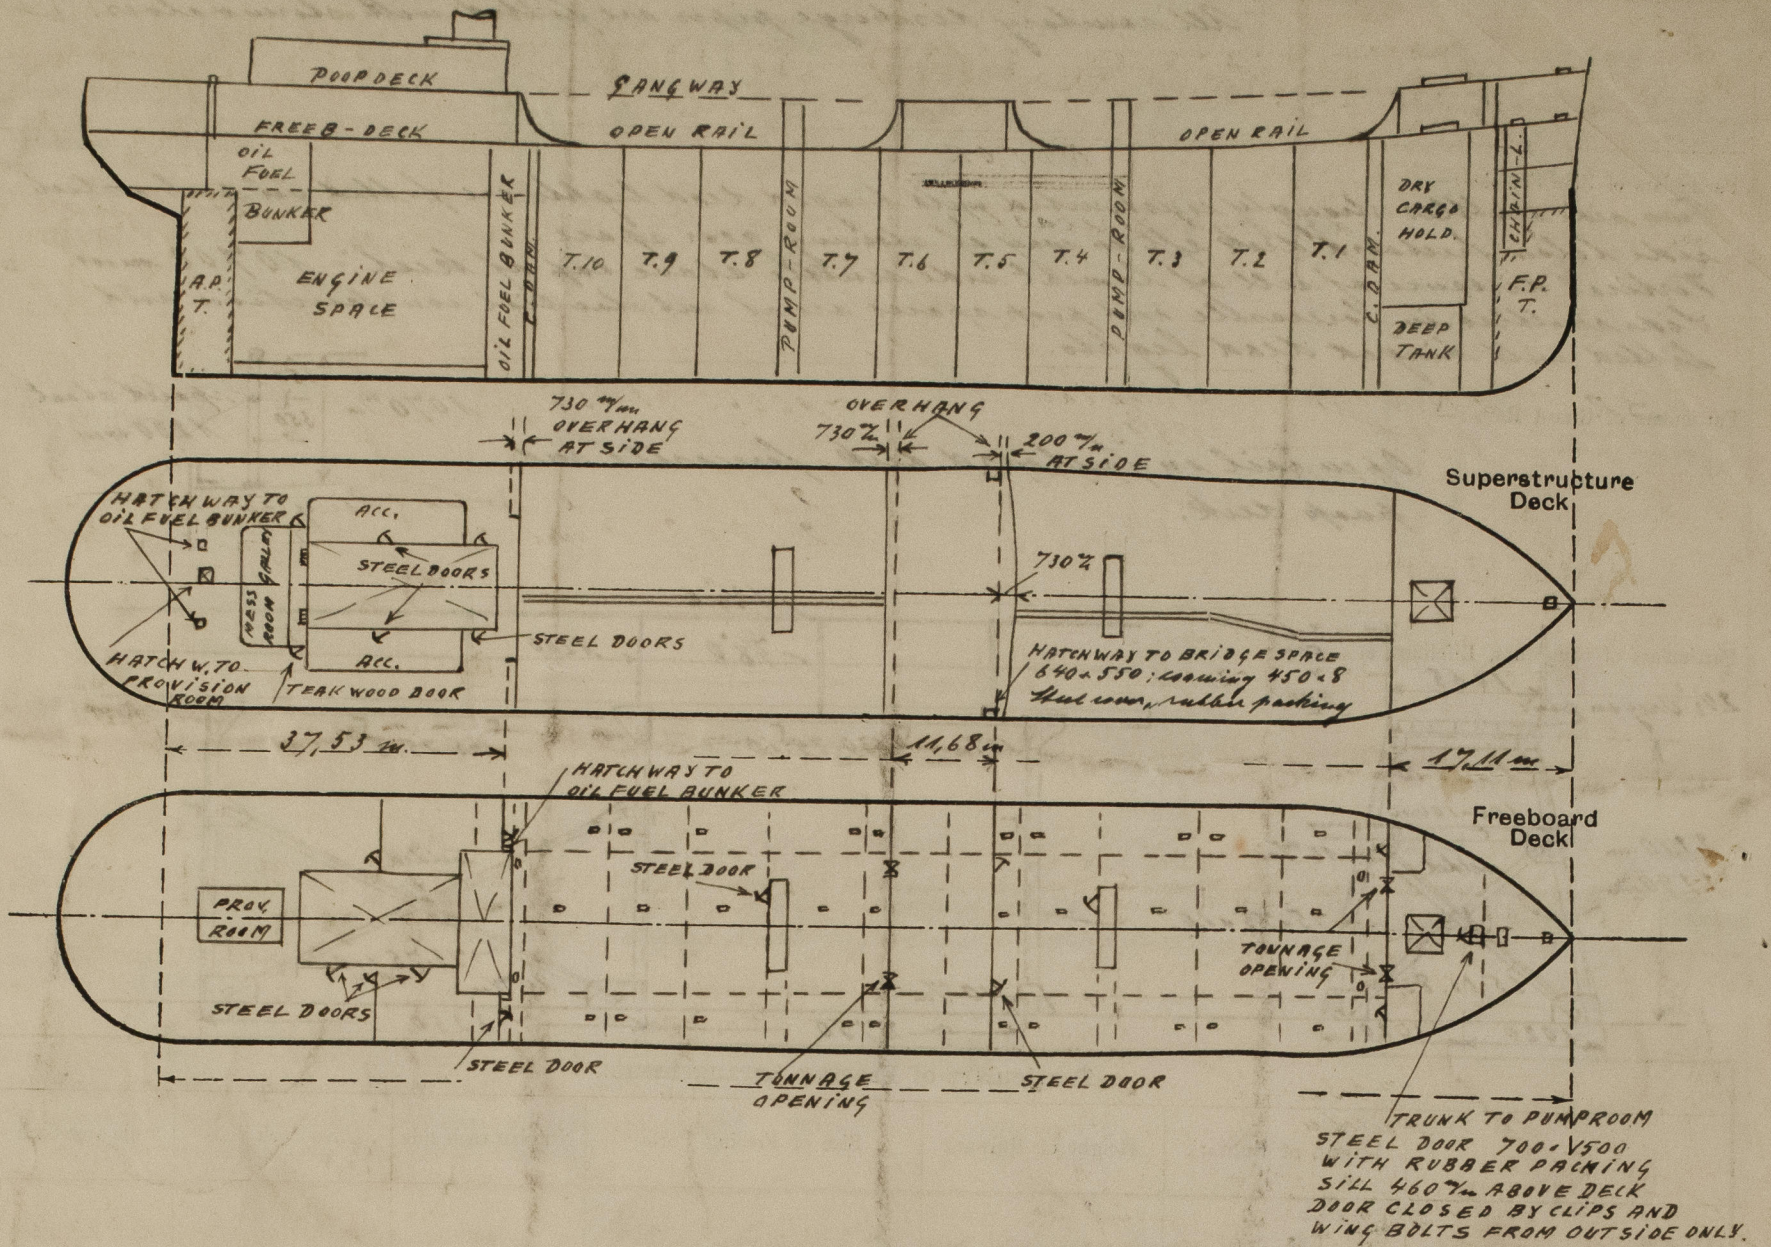 POOPDECK
GANGWAY
FREEB-DECK
OPEN RAIL
OPEN RAIL
OIL
FUEL
BUNKER
A.P.
T.
ENGINE
SPACE
OIL FUEL BUNKER
C. DAM.
T.10
T.9
T.8
PUMP-ROOM
T.7
T.6
T.5
T.4
PUMP-ROOM
T.3
T.2
T.1
C. DAM.
DRY
CARGO
HOLD.
DEEP
TANK
CHAIN-L.
F.P.
T.
730 m/m
OVERHANG
AT SIDE
OVERHANG
730 m/m
200 m/m
AT SIDE
Superstructure
Deck
HATCHWAY TO
OIL FUEL BUNKER
ACC.
MESS
ROOM
GALLEY
STEEL DOORS
STEEL DOORS
ACC.
HATCHW. TO
PROVISION
ROOM
TEAK WOOD DOOR
730 m/m
HATCHWAY TO BRIDGE SPACE
640 x 550; coaming 450 x 8
Steel cover, rubber packing
37,53 m.
11,68 m
17,11 m
HATCHWAY TO
OIL FUEL BUNKER
Freeboard
Deck
STEEL DOOR
PROV.
ROOM
TONNAGE
OPENING
STEEL DOORS
STEEL DOOR
TONNAGE
OPENING
STEEL DOOR
TRUNK TO PUMPROOM
STEEL DOOR 700 x 1500
WITH RUBBER PACKING
SILL 460 m/m ABOVE DECK
DOOR CLOSED BY CLIPS AND
WING BOLTS FROM OUTSIDE ONLY.